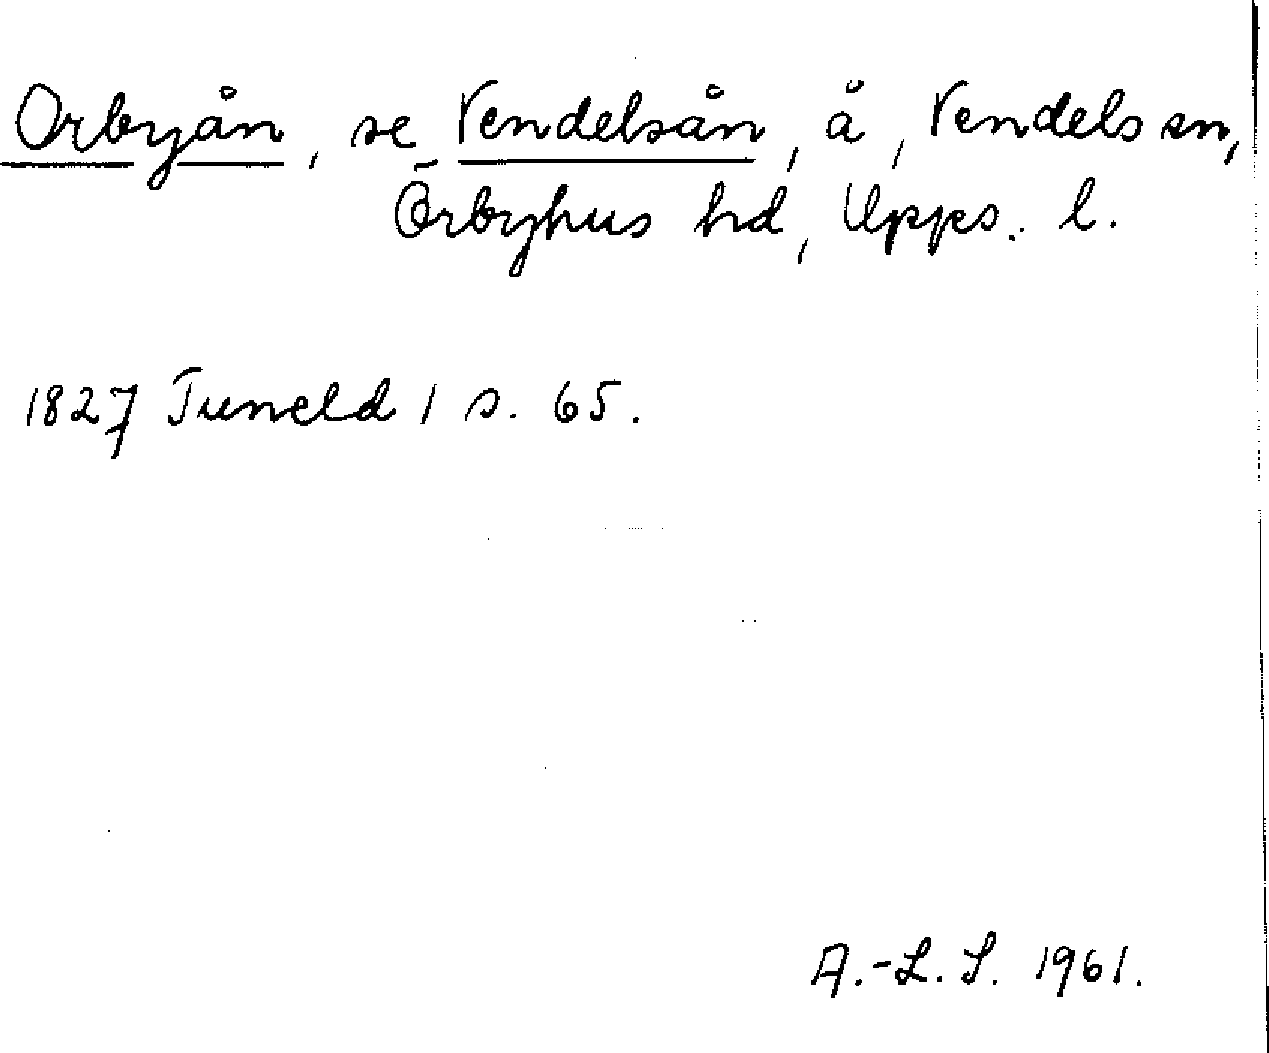 Orbyån, se Vendelsån, å, Vendels sn,
Örbyhus hd, Upps. l.
1827 Tuneld 1 s. 65.
A.-L. S. 1961.